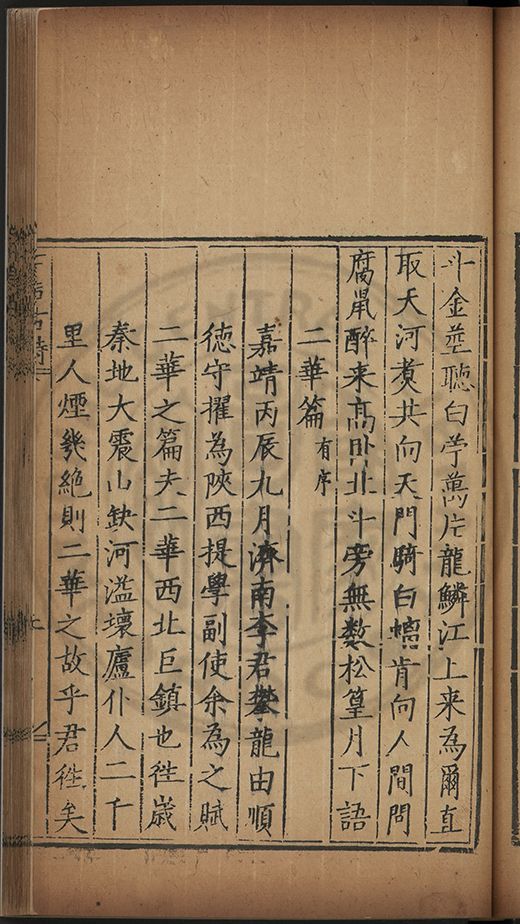 斗金莖聴白苧萬片龍鱗江上来為爾直
取天河煑共向天門騎白螭肯向人間問
腐鼠醉来高卧北斗旁無數松篁月下語
二華篇有序
嘉靖丙辰九月濟南李君攀龍由順
徳守擢為陝西提學副使余為之賦
二華之篇夫二華西北巨鎮也徃歳
秦地大震山缺河溢壞廬仆人二千
里人煙幾絶則二華之故乎君徃矣